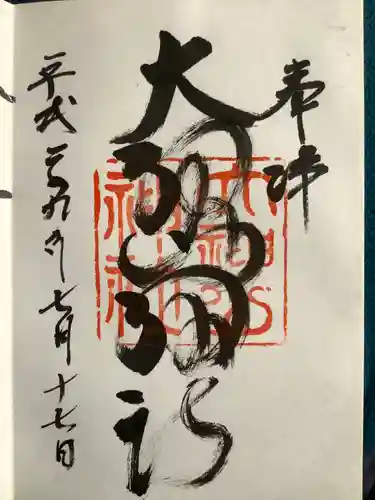 奉拝
大神神社
平成二十九年七月十七日